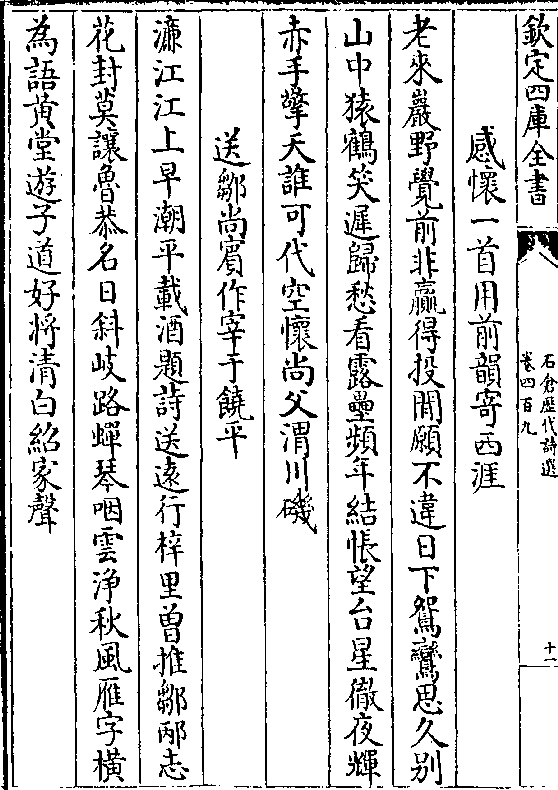 欽定四庫全書
石倉歷代詩選
卷四百九
十一
感懷一首用前韻寄西涯
老來巖野覺前非贏得投閒願不違日下鴛鸞思久別
山中猿鶴笑遲歸愁看露壘頻年結悵望台星徹夜輝
赤手擎天誰可代空懷尚父渭川磯
送鄒尚賓作宰于饒平
濂江江上早潮平載酒題詩送遠行梓里曽推鄒邴志
花封莫讓魯恭名日斜岐路蟬琴咽雲淨秋風雁字横
為語黄堂遊子道好將清白紹家聲